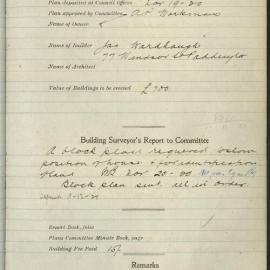 Plan deposited at Council Offices Nov 19-20
Plan approved by Committee
Name of Owner A. Workman
Name of builder Jas Wardhaugh
77 Windsor St Paddington
Name of Architect
Value of Buildings to be erected £700
Building Surveyor's Report to Committee
A block plan required
position of house & for identification
of land Nov 20-20
Block plan sent all in order
Event Book, folio
Plans Committee Minute Book, page
Building Fee Paid 15/-
Remarks